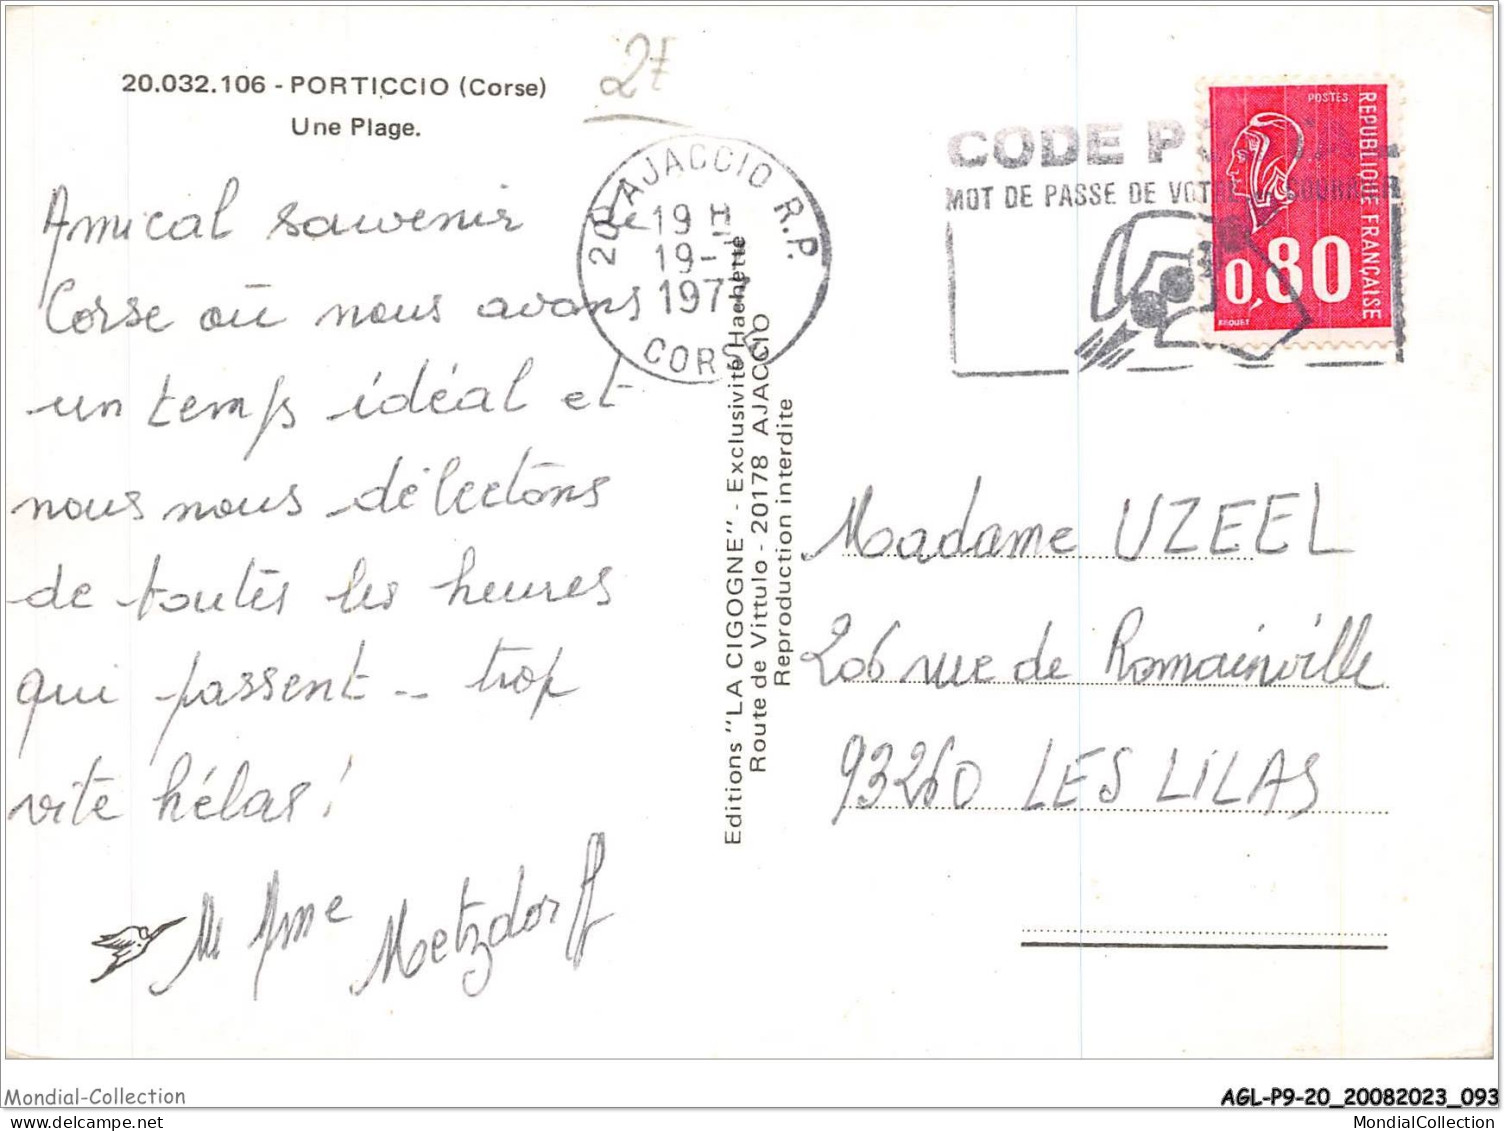 20.032.106 - PORTICCIO (Corse)
Une Plage.
2F
Amical souvenir de
Corse où nous avons
un temps idéal et
nous nous délectons
de toutes les heures
qui passent - trop
vite hélas!
M Mme Metzdorff
20 AJACCIO R.P.
19 H
19-
197
CORSE
Editions "LA CIGOGNE" - Exclusivité Hachette
Route de Vittulo - 20178 AJACCIO
Reproduction interdite
CODE POSTAL
MOT DE PASSE DE VOTRE COURRIER
POSTES
REPUBLIQUE FRANÇAISE
0,80
BEQUET
Madame UZEEL
206 rue de Romainville
93260 LES LILAS
Mondial-Collection
AGL-P9-20_20082023_093
delcampe.net
MondialCollection